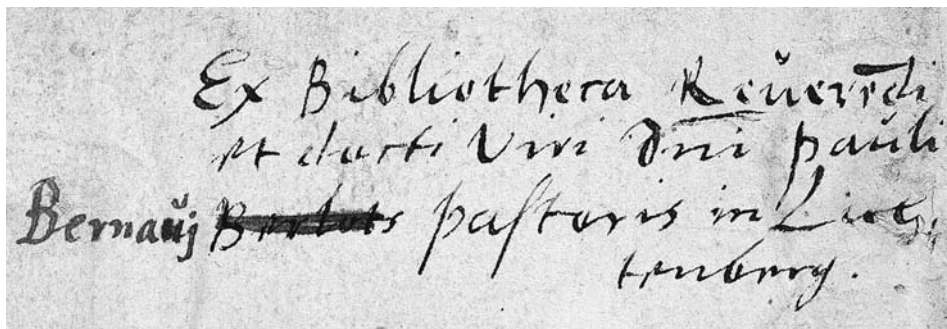 Ex Bibliotheca Reŭerēdi
et docti Viri Dn̄i Paŭli
Bernaŭj pastoris in Lich,
tenberg.